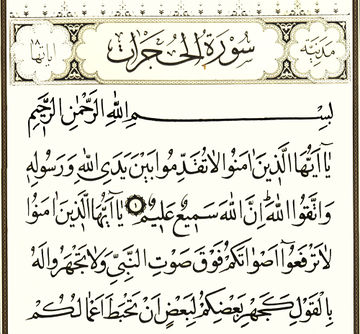 مدنية سورة الحجرات آياتها ١٨
بِسْمِ اللهِ الرَّحْمٰنِ الرَّحٖيمِ
يَٓا اَيُّهَا الَّذٖينَ اٰمَنُوا لَا تُقَدِّمُوا بَيْنَ يَدَيِ اللهِ وَرَسُولِهٖ
وَاتَّقُوا اللهَ اِنَّ اللهَ سَمٖيعٌ عَلٖيمٌ ١ يَٓا اَيُّهَا الَّذٖينَ اٰمَنُوا
لَا تَرْفَعُٓوا اَصْوَاتَكُمْ فَوْقَ صَوْتِ النَّبِيِّ وَلَا تَجْهَرُوا لَهُ
بِالْقَوْلِ كَجَهْرِ بَعْضِكُمْ لِبَعْضٍ اَنْ تَحْبَطَ اَعْمَالُكُمْ